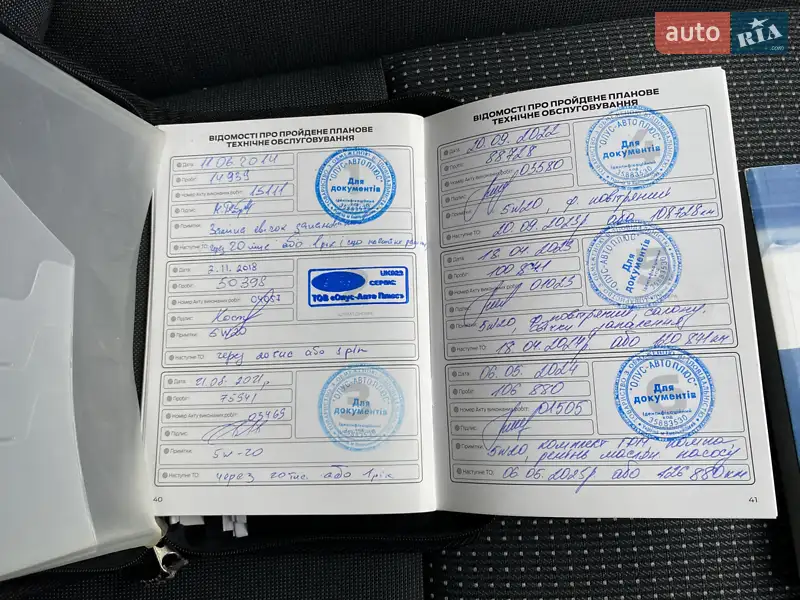 auto RIA
ВІДОМОСТІ ПРО ПРОЙДЕНЕ ПЛАНОВЕ
ТЕХНІЧНЕ ОБСЛУГОВУВАННЯ
Дата:
Пробіг: 14959
Номер Акту виконаних робіт: 15111
Підпис:
Примітки: Заміна свічок
Наступне ТО: через 20 тис або 1 рік
"ОПУС-АВТО ПЛЮС"
Для
документів
Ідентифікаційний
код
Дата: 2.11.2018
Пробіг: 50398
Номер Акту виконаних робіт: 04057
Підпис:
Примітки: 5W20
Наступне ТО: через 20 тис або 1 рік
СЕРВІС
ТОВ «Опус-Авто Плюс»
Дата: 21.08.2021р
Пробіг: 75541
Номер Акту виконаних робіт: 03469
Підпис:
Примітки: 5w-20
Наступне ТО: через 20 тис. або 1 рік
"ОПУС-АВТО ПЛЮС"
Для
документів
Ідентифікаційний
код
40
ВІДОМОСТІ ПРО ПРОЙДЕНЕ ПЛАНОВЕ
ТЕХНІЧНЕ ОБСЛУГОВУВАННЯ
Дата: 20.09.2022
Пробіг: 88728
Номер Акту виконаних робіт: 03580
Підпис:
Примітки: 5w20, ф. повітряний
Наступне ТО: 20.09.2023р або 108728 км
"ОПУС-АВТО ПЛЮС"
Для
документів
Ідентифікаційний
код
35883530
Дата:
Пробіг: 100841
Номер Акту виконаних робіт: 01025
Підпис:
Примітки: 5w20, ф. повітряний, салону,
свічки запалення
Наступне ТО: або 120841 км
"ОПУС-АВТО ПЛЮС"
Для
документів
Дата: 06.05.2024
Пробіг: 106880
Номер Акту виконаних робіт: 01505
Підпис:
Примітки: 5w20, комплект ГРМ, помпа,
ремінь насосу
Наступне ТО: 06.05.2025р або 126880 км
"ОПУС-АВТО ПЛЮС"
Для
документів
Ідентифікаційний
код
35883530
41